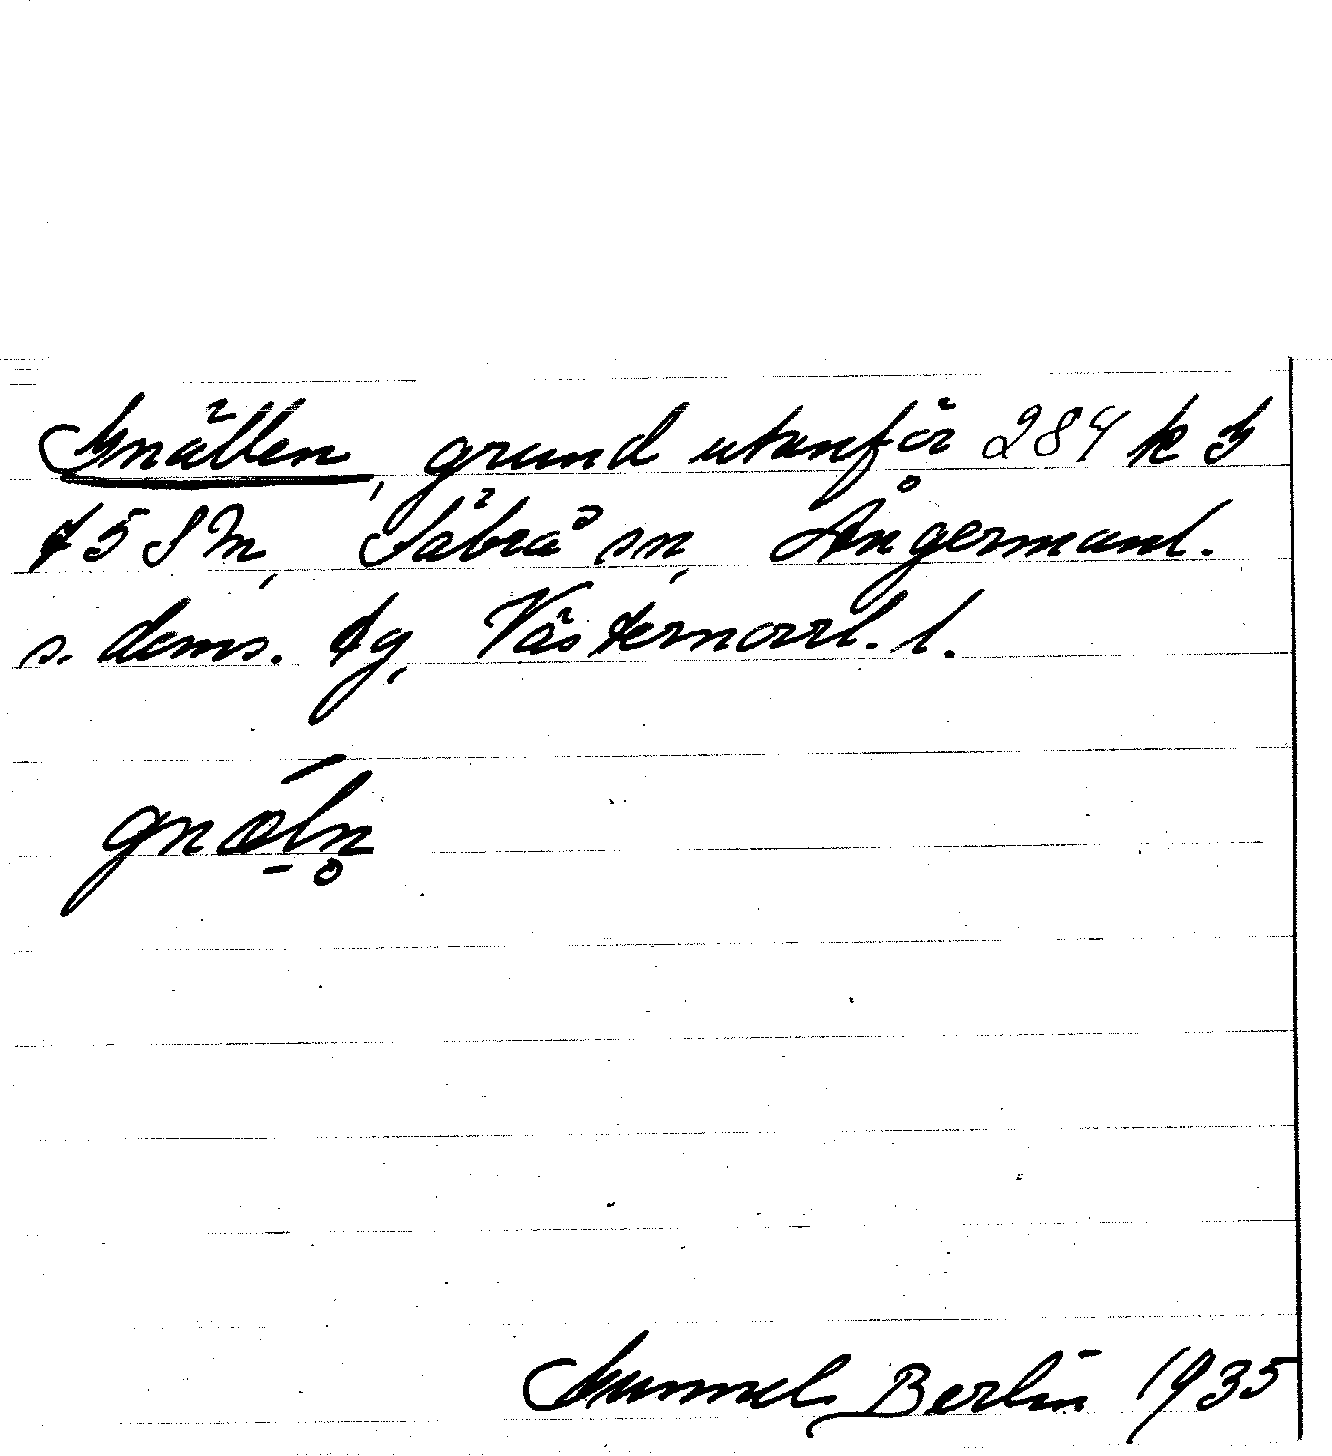 Gnällen, grund utanför 284 k 5
75 SM, Säbrå sn, Ångermanl.
s. doms. tg, Västernorrl. l.
gnäln
Gunnel Berlin 1935